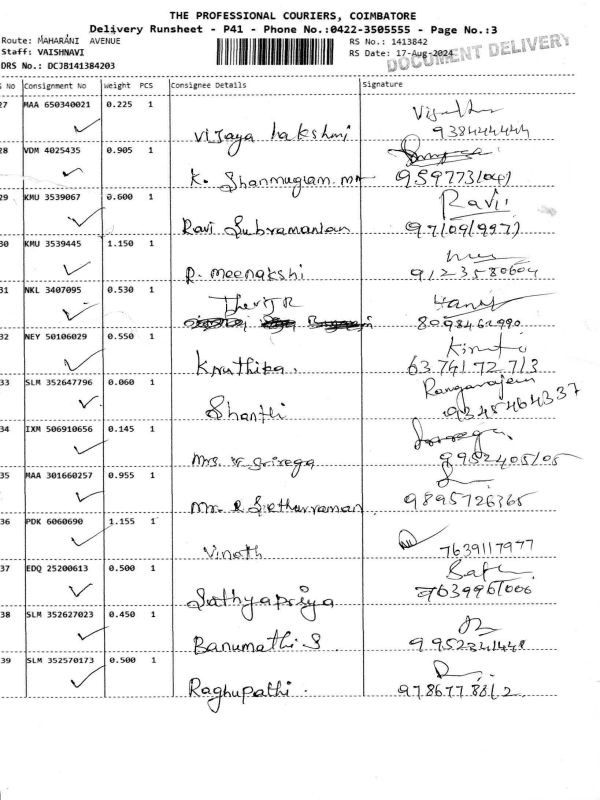 THE PROFESSIONAL COURIERS, COIMBATORE
Delivery Runsheet - P41 - Phone No.:0422-3505555 - Page No.:3
Route: MAHARANI AVENUE RS No.: 1413842
Staff: VAISHNAVI RS Date: 17-Aug-2024
DOCUMENT DELIVERY
DRS No.: DCJB141384203
S No Consignment No Weight PCS Consignee Details Signature
27 MAA 650340021 0.225 1
Vijaya lakshmi
28 VDM 4025435 0.905 1
K. Shanmugam
29 KMU 3539067 0.600 1 Ravi
Ravi Subramanian
30 KMU 3539445 1.150 1
R. meenakshi 9123580604
31 NKL 3407095 0.530 1
8098462990
32 NEY 50106029 0.550 1
Kruthika. 63 791 72 713
33 SLM 352647796 0.060 1 Rangarajan
Shanthi 9345464337
34 IXM 506910656 0.145 1
Mrs. Srirega 9952405105
35 MAA 301660257 0.955 1
Mr. R Sethurraman 9895726365
36 PDK 6060690 1.155 1
Vinoth 7639117977
37 EDQ 25200613 0.500 1
Sathyapriya 7639961006
38 SLM 352627023 0.450 1
Banumathi S
39 SLM 352570173 0.500 1
Raghupathi. 9786778812